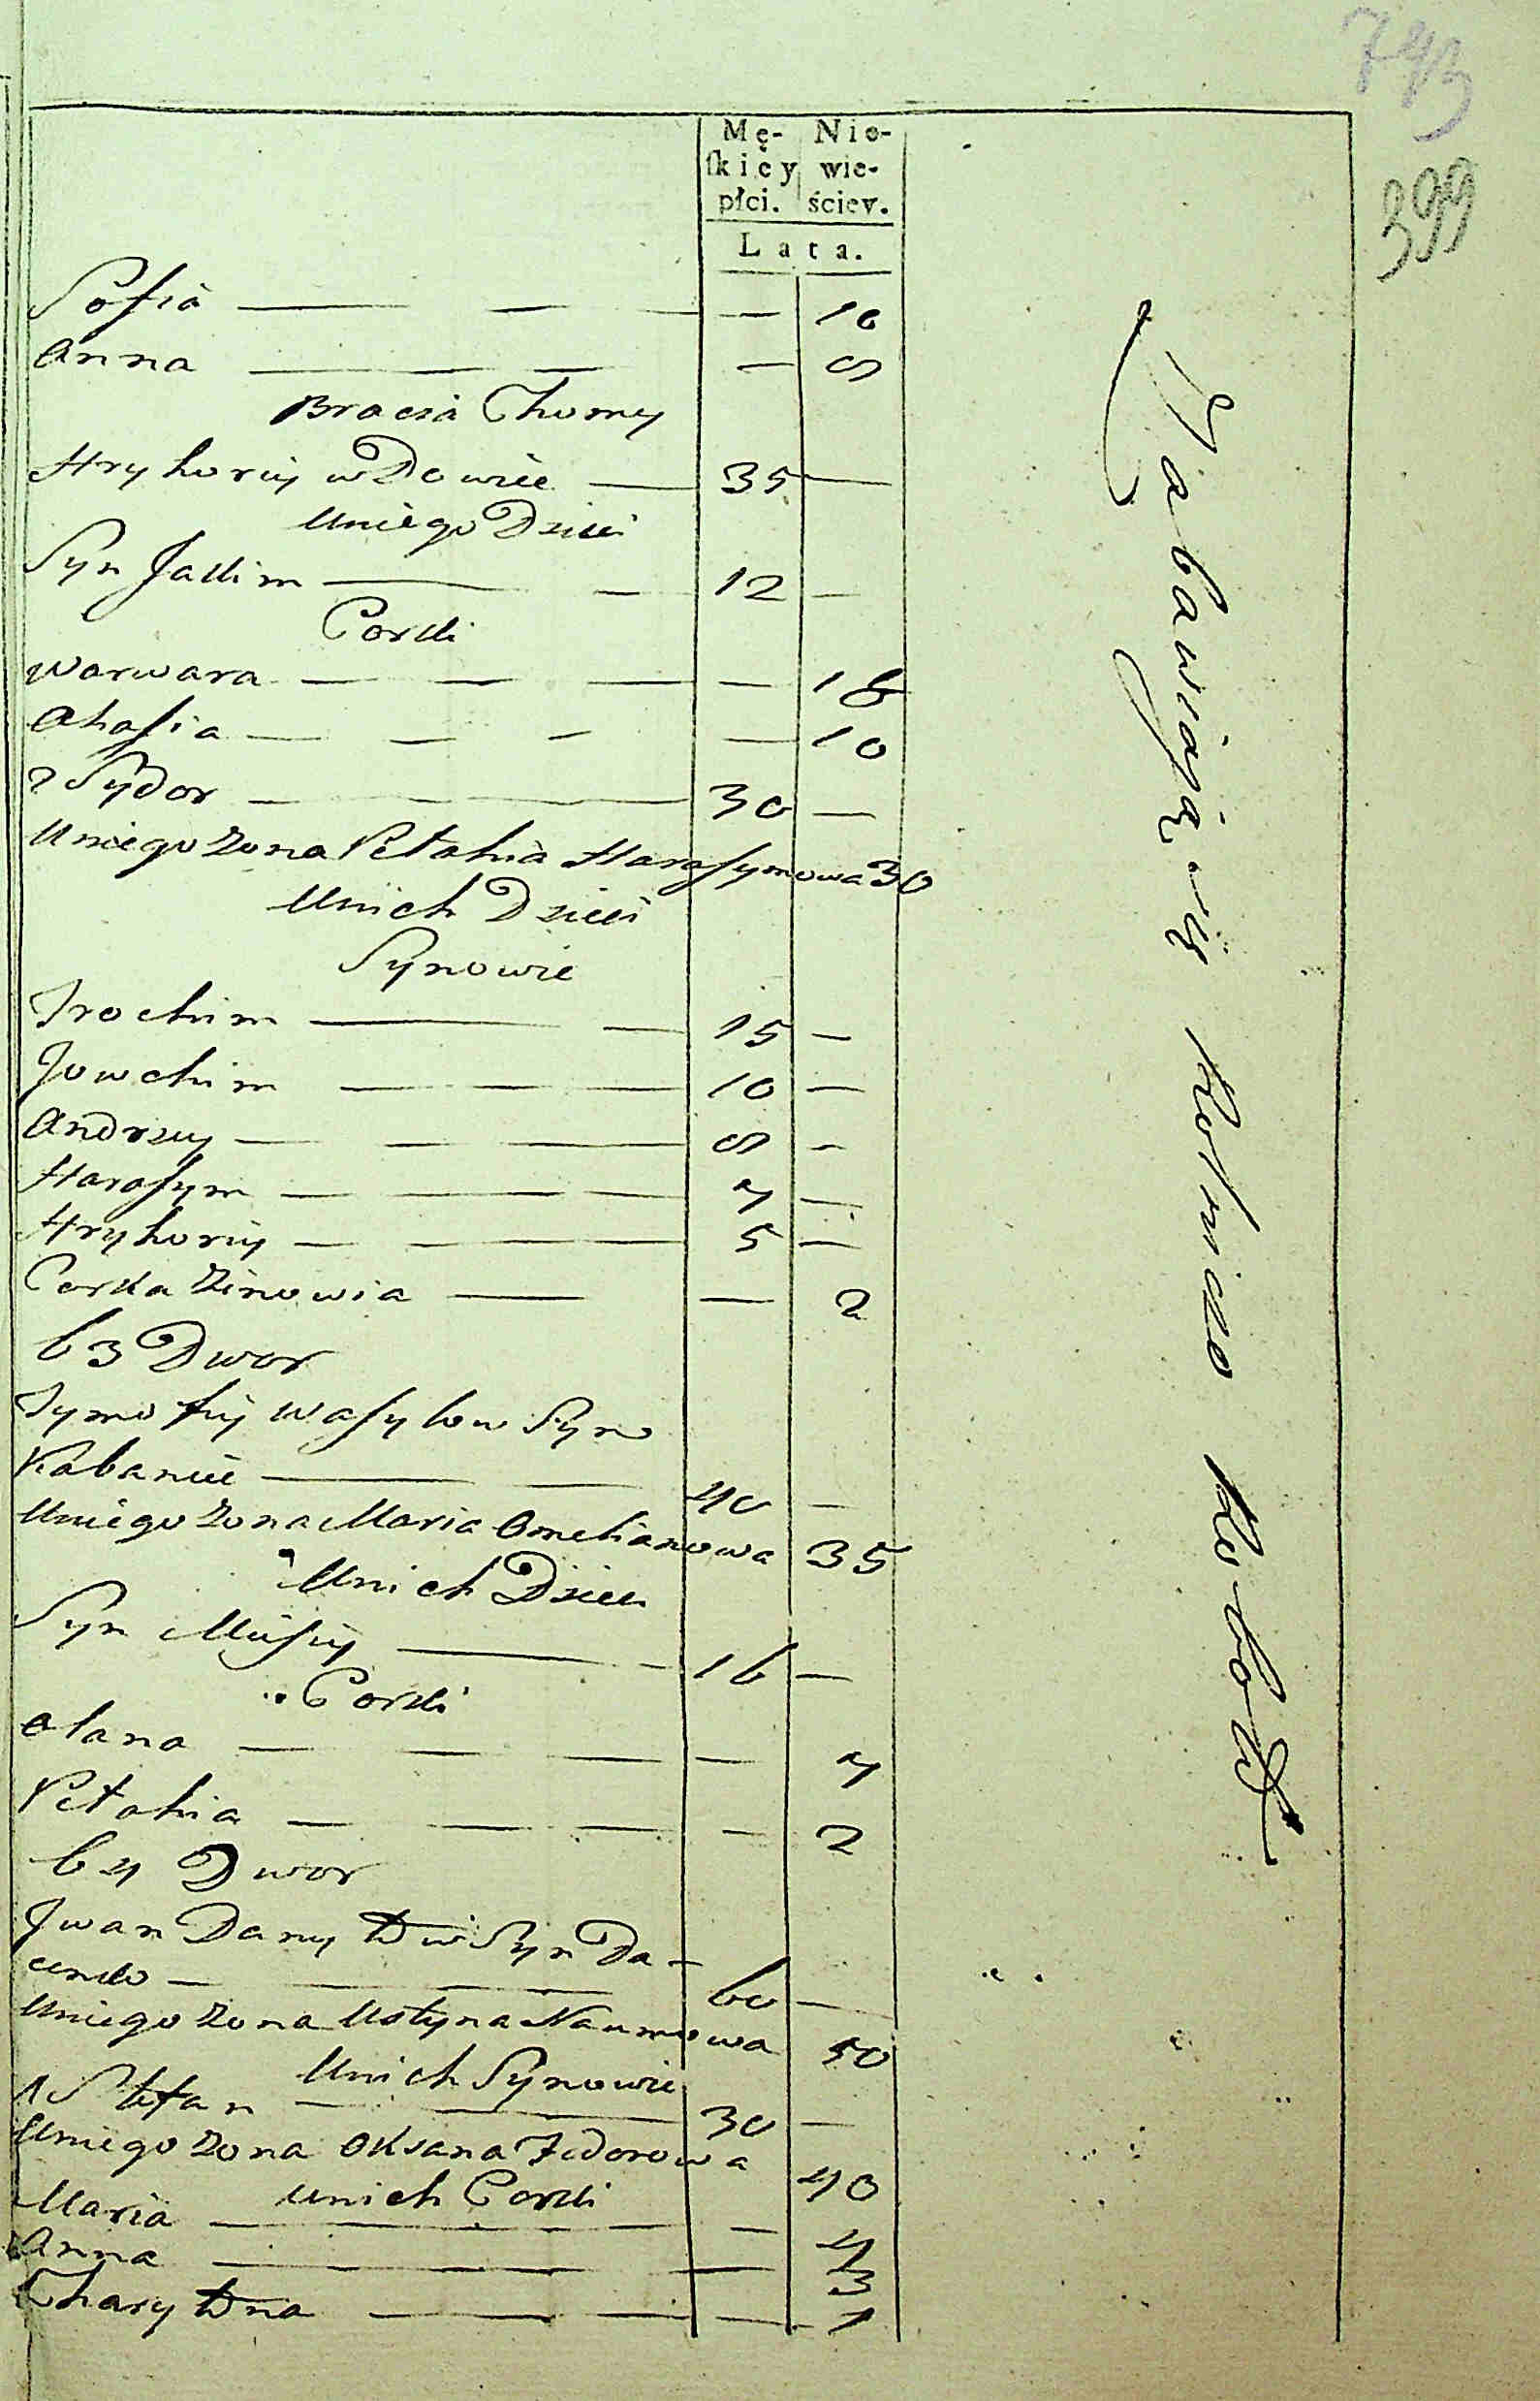 743
399
Mę- Nie-
ſkiey wie-
płci. ściey.
Lata.
Sofia — — — — 10
Anna — — — — 9
Bracia Chomy
Hryhoriy w Dowiec — 35 —
Uniego Dzieci
Syn Jakim — — 12 —
Corki
Warwara — — — — 16
Ahafia — — — — 10
2 Sydor — — — 30 —
Uniego Zona Pelahia Harasymowa 30
Unich Dzieci
Synowie
Trochim — — 15 —
Jowchim — — — 10 —
Andrzey — — — 9 —
Harasym — — — 7 —
Hryhoriy — — — 5 —
Corka Zinowia — — 2
63 Dwor
Tymofiy Wasylow Syn
Kabaniec — — 40 —
Uniego Zona Maria Omelianowa 35
Unich Dzieci
Syn Musiy — — 16 —
Corki
Olana — — — — 7
Pelahia — — — — 2
64 Dwor
Jwan Danyłow Syn Da-
cenko — — — 60 —
Uniego Zona Ustyna Naumowa 50
Unich Synowie
1 Stefan — — 30 —
Uniego Zona Oksana Fedorowa 40
Unich Corki
Maria — — — — 4
Anna — — — — 3
Charytyna — — — 1
Zabawiaią się Rolnicza Robotą